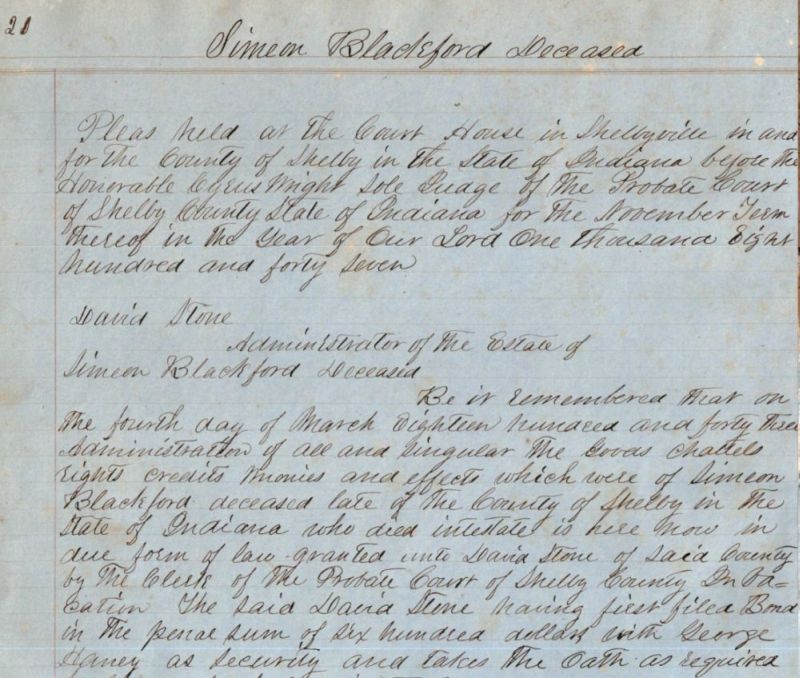 21
Simeon Blackford Deceased
Pleas held at the Court House in Shelbyville in and
for the County of Shelby in the State of Indiana before the
Honorable Cyrus Wright Sole Judge of the Probate Court
of Shelby County State of Indiana for the November Term
thereof in the Year of Our Lord One thousand Eight
hundred and forty Seven
David Stone
Administrator of the Estate of
Simeon Blackford Deceased
Be it remembered that on
the fourth day of March Eighteen hundred and forty three
Administration of all and Singular the Goods chattels
rights credits monies and effects which were of Simeon
Blackford deceased late of the County of Shelby in the
State of Indiana who died intestate is here now in
due form of law granted unto David Stone of Said County
by the Clerk of the Probate Court of Shelby County In Va=
cation The said David Stone having first filed Bond
in the penal sum of six hundred dollars with George
Haney as security and takes the Oath as required